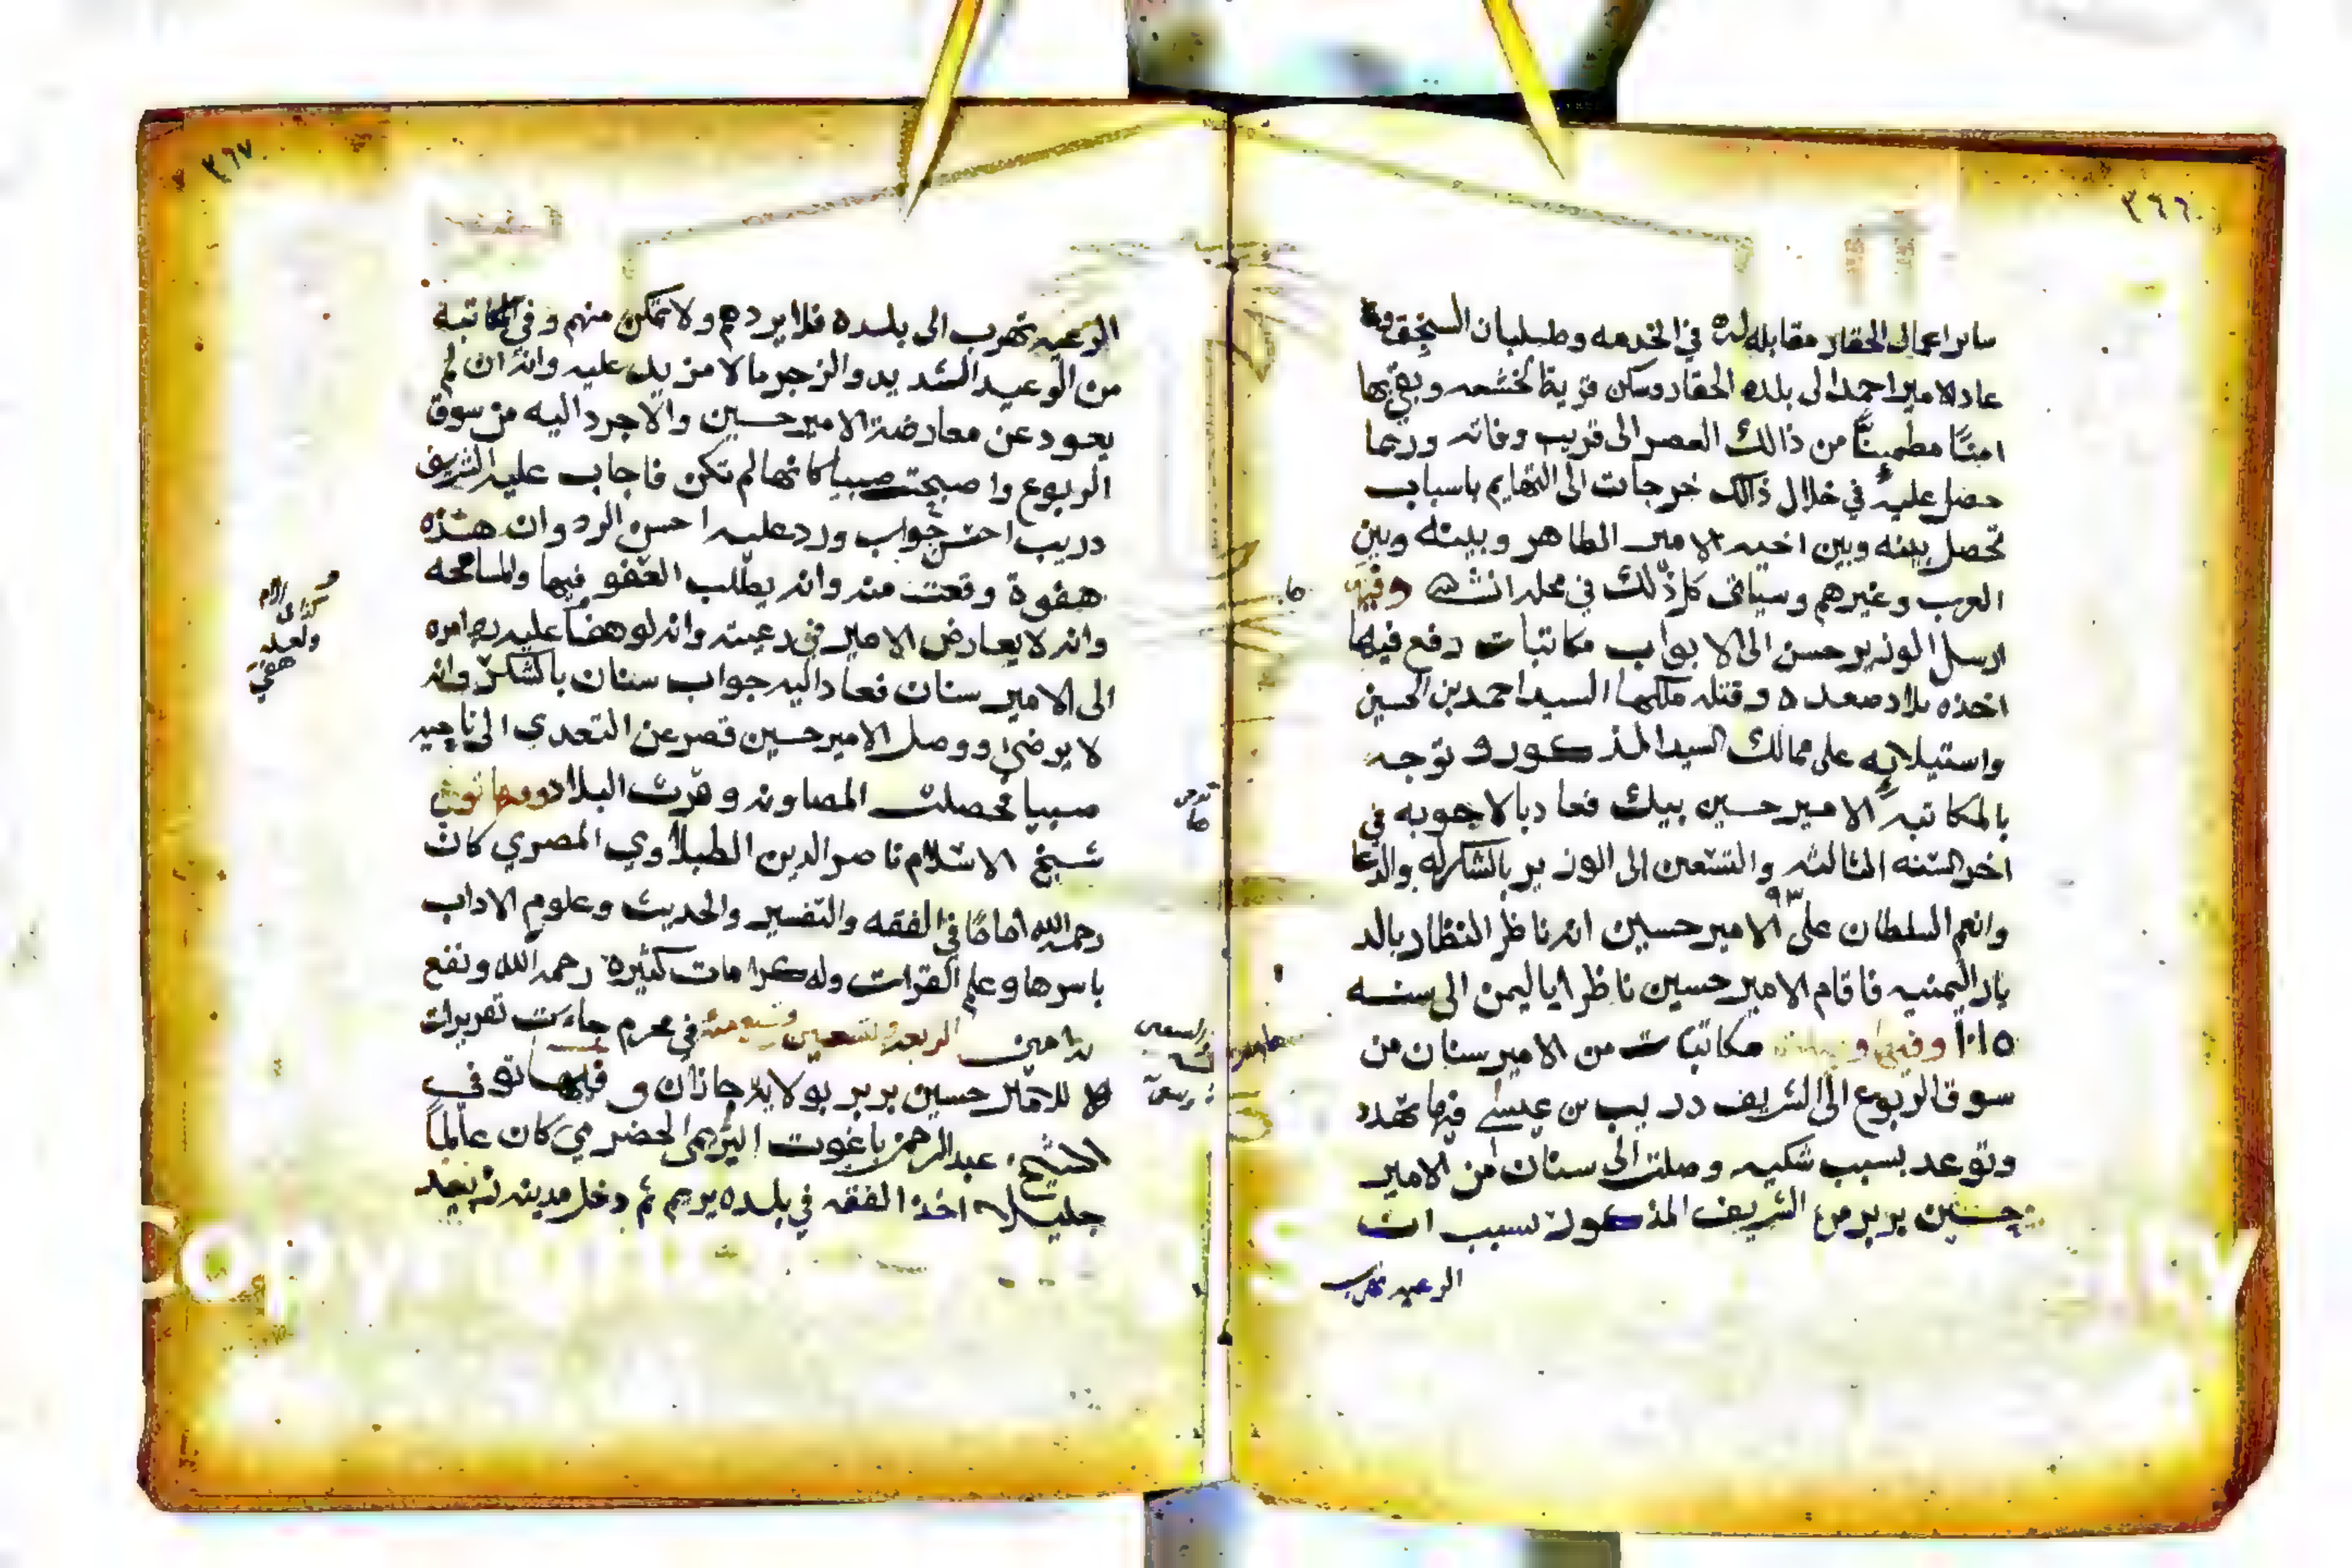 ٣٦٦
ساير اعمال الحقار مقابله له في الخدمه وطبلبان السنجق
عاد الامير احمد الى بلده الحقار وسكن قرية الخشعه وبقي بها
امنًا مطمينًّا من ذالك العصر الى قريب وفاته وربما
حصل عليه في خلال ذالك خرجات الى التهايم باسباب
تحصل بينه وبين اخيه الامير الطاهر وبينه وبين
العرب وغيرهم وسياتي كل ذلك في محله انشا الله وفيها
ارسل الوزير حسن الى الابواب مكاتبات دفع فيها
اخذه بلاد صعده وقتله ملكها السيد احمد بن الحسين
واستيلايه على ممالك السيد المذكور وتوجه
بالمكاتبه الامير حسين بيك فعاد بالاجوبه في
اخر السنه الثالثه والتسعين الى الوزير بالشكر له والدعا
٩٣
وانعم السلطان على الامير حسين انه ناظر النظار بالد
يار اليمنيه فاقام الامير حسين ناظرا باليمن الى سنه
١٠١٥ وفيها مكاتبات من الامير سنان من
سوق الربوع الى الشريف دريب بن عيسى فيها تهدد
وتوعد بسبب شكيه وصلت الى سنان من الامير
حسين بربر من الشريف المذكور بسبب ان
الرعيه تهرب
٣٦٧
الرعيه تهرب الى بلده فلا يردهم ولا تمكن منهم وفي المكاتبة
من الوعيد الشديد والزجر ما لا مزيد عليه وانه ان لم
يعود عن معارضة الامير حسين والا جرد اليه من سوق
الربوع واصبحت صبيا كانها لم تكن فاجاب عليه الشريف
دريب احسن جواب ورد عليه احسن الرد وان هذه
هفوة وقعت منه وانه يطلب العفو فيها والمسامحه
وانه لا يعارض الامير في رعيته وانه لو هضا عليه امره
الى الامير سنان فعاد اليه جواب سنان بالشكر وانه
لا يرضى ووصل الامير حسين قصر عن التعدي الى ناحيه
صبيا فحصلت المصاونه وقرت البلاد وفيها توفي
شيخ الاسلام ناصر الدين الطبلاوي المصري كان
رحمه الله امامًا في الفقه والتفسير والحديث وعلوم الاداب
باسرها وعلم القرات وله كرامات كثيرة رحمه الله ونفع
به امين اربعه وتسعين وتسعمئه في محرم جاءت تقريرات
للامير حسين بربر بولاية جازان وفيها توفي
الشيخ عبدالرحمن باغوت اليريمي الحضرمي كان عالمًا
جليلا اخذ الفقه في بلده يريم ثم دخل مدينه
كذا في الام
ولعله
هفي